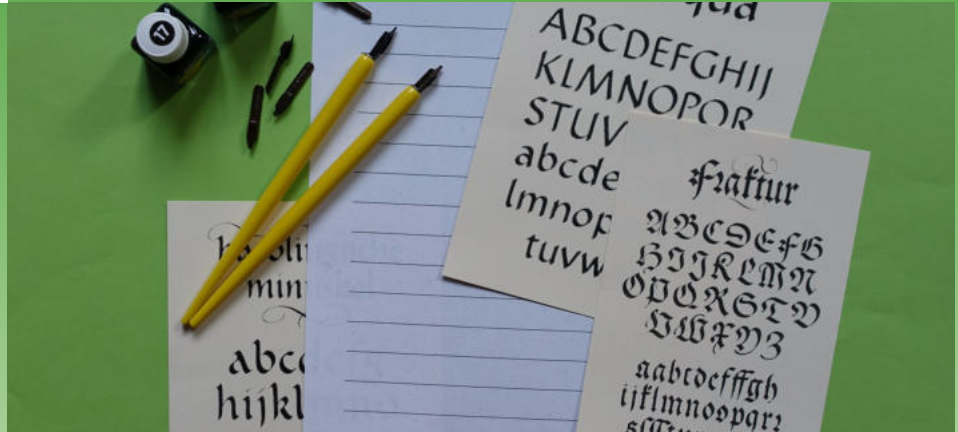 17
qua
ABCDEFGHIJ
KLMNOPQR
STUV
abcde
lmnop
tuvw
Fraktur
ABCDEFG
HIJKLMN
OPQRSTV
UWXYZ
aabcdefffgh
ijklmnoopqrr
min
abcd
hijkl